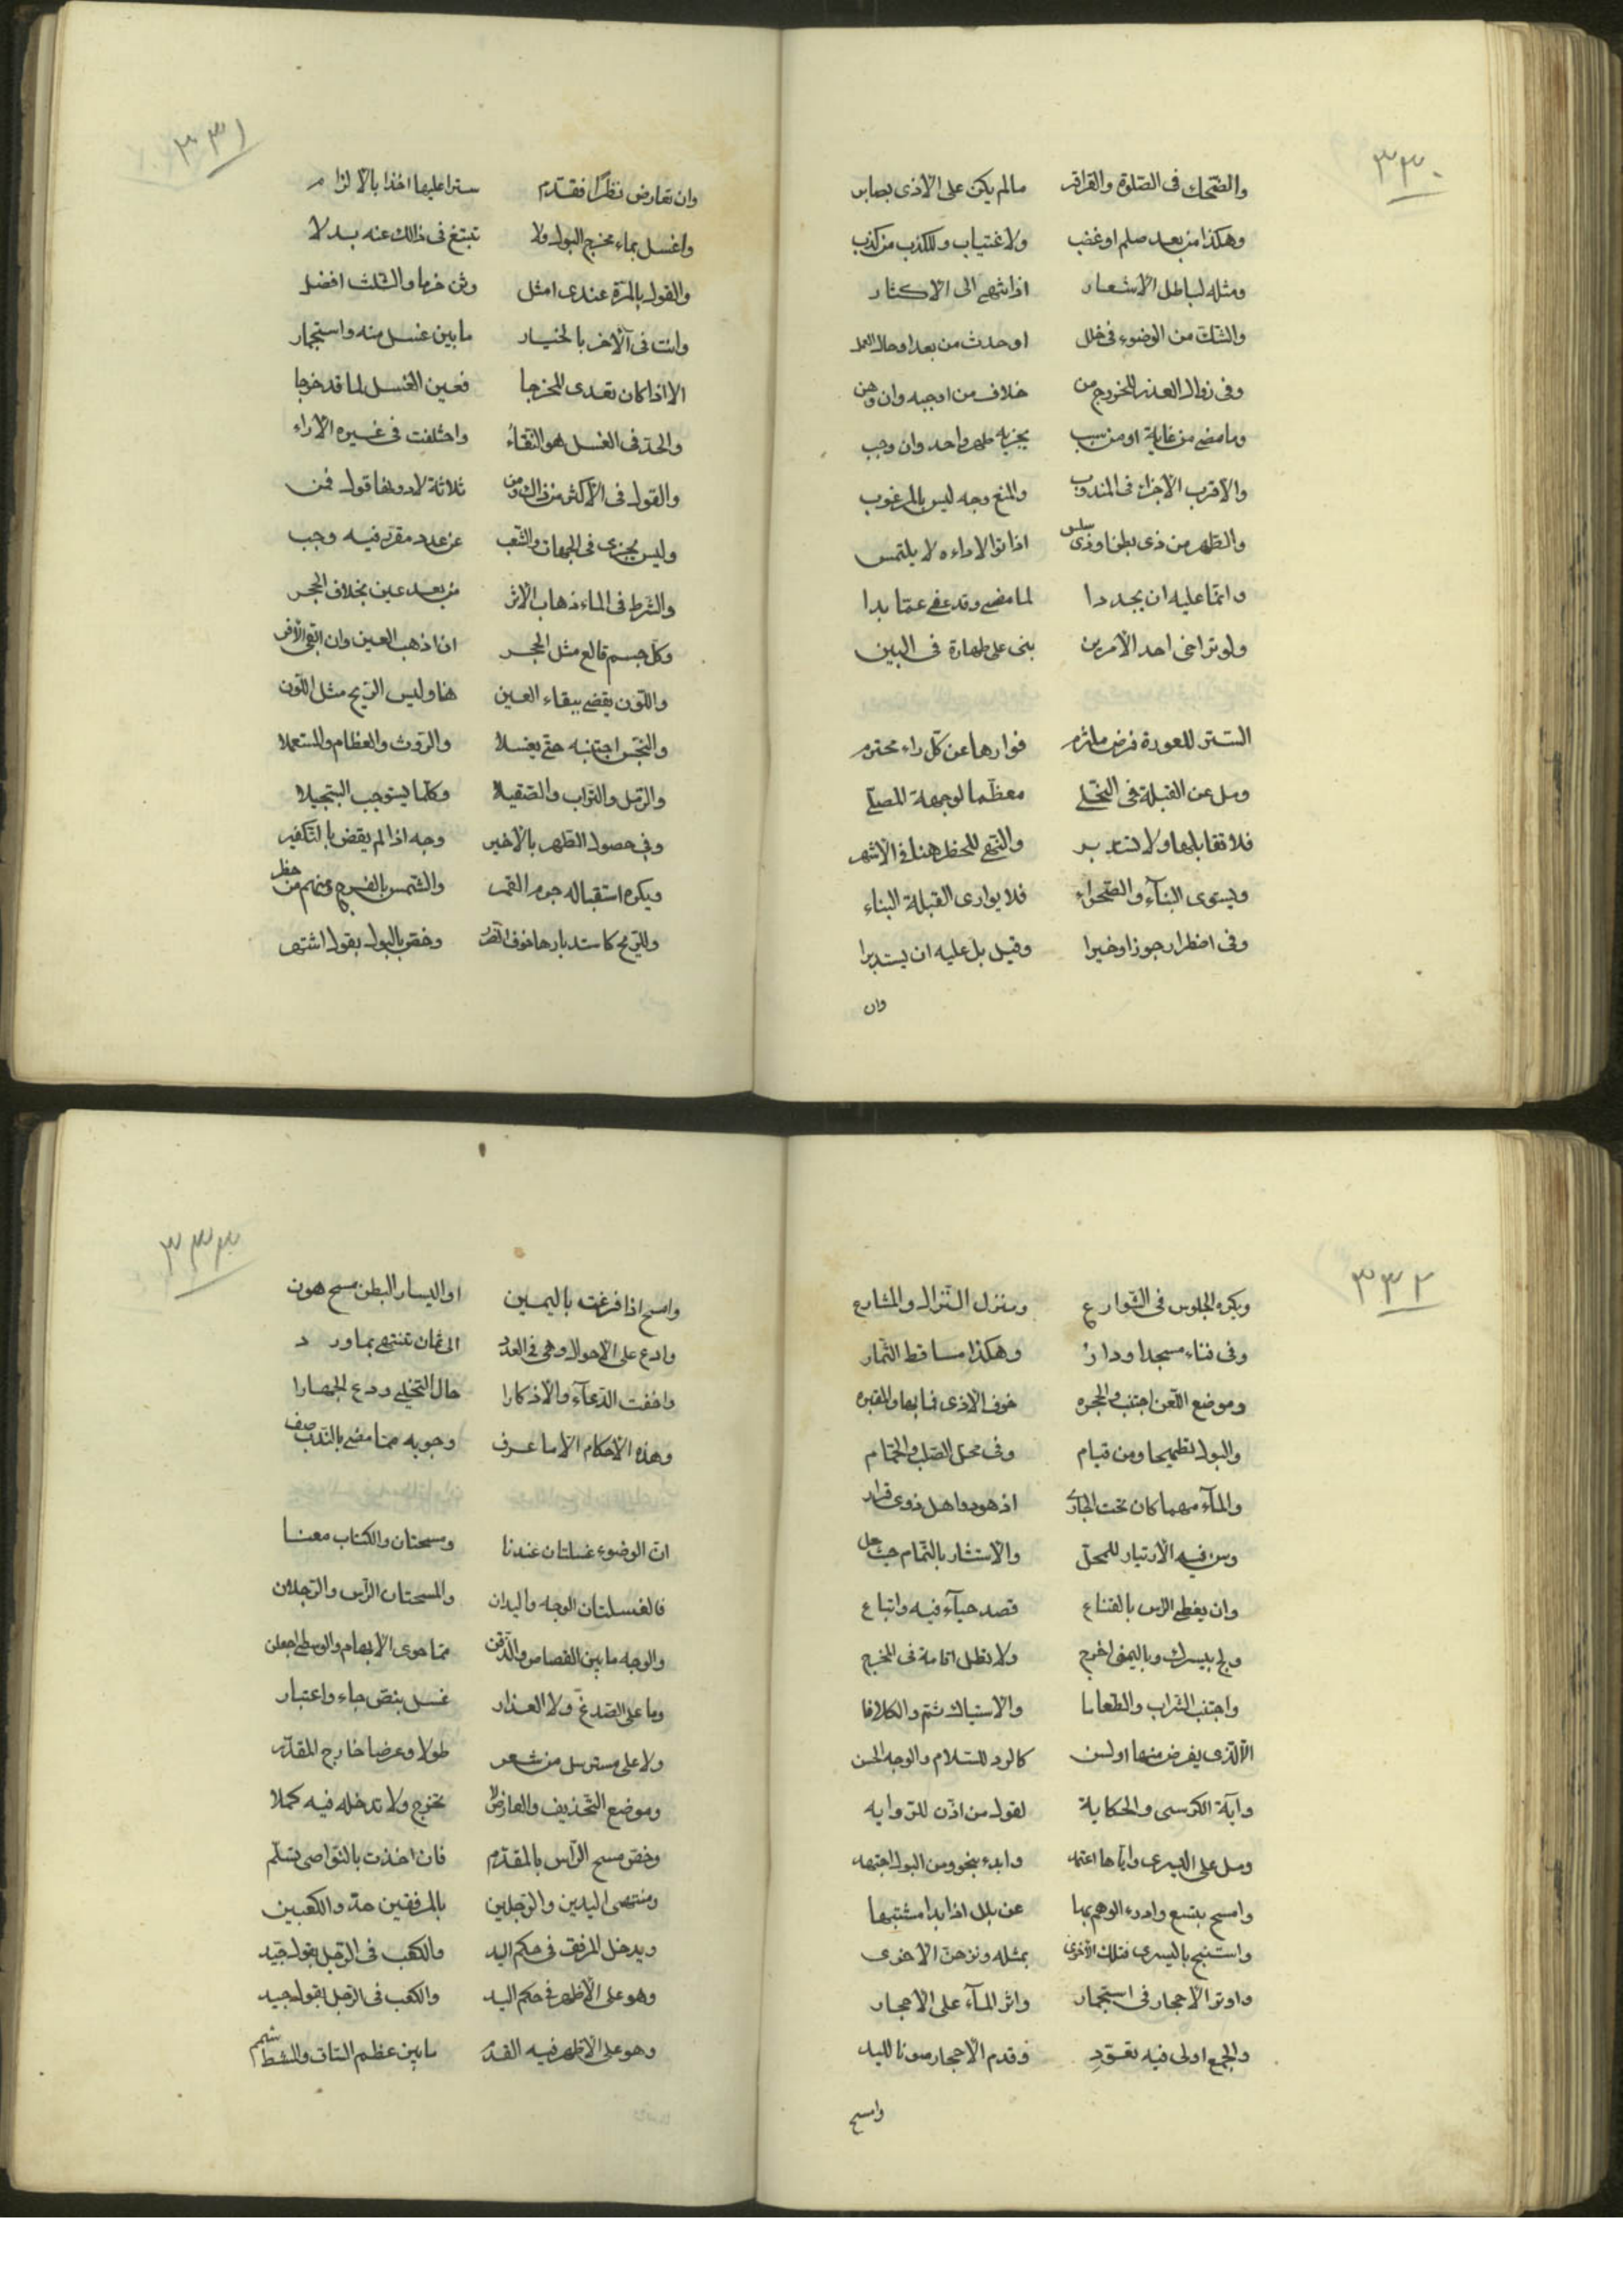 ٣٣٠
والضحك فى الصلوة والقراقر مالم يكن على الاذى بصابر
وهكذا من بعد ظلم او غضب ولاغتياب وللكذب من كذب
ومثله لباطل الاشعار اذا انتهى الى الاكثار
والشك من الوضوء فى خلل او حدث من بعد او حال العمل
وفى زوال العذر للخروج من خلاف من اوجبه وان وهن
وما مضى من غاية او من سبب يجزيه طهر واحد وان وجب
والاقرب الاجزاء فى المندوب والمنع وجه ليس بالمرغوب
والطهر من ذى بطن او ذى سلس اذا نوالا داءه لا يلتمس
وانما عليه ان يجددا لما مضى وقد عفى عما بدا
ولو تراخى احد الامرين بنى على طهارة فى البين
الستر للعورة فرض ملتزم فوارها عن كل راء محترم
ومل عن القبلة فى التخلى معظما لوجهة المصلى
فلا تقابلها ولا تستدبر والنهى للحظر هنا فى الاشهر
ويستوى البنآء والصحراء فلا يوارى القبلة البناء
وفى اضطرار جوزا وخيرا وقيل بل عليه ان يستدبرا
وان
٣٣١
وان تعارض نظرًا فقدم سترا عليها اخذا بالالزام
واغسل بماء مخرج البول ولا تبتغ فى ذالك عنه بدلا
والقول بالمرة عندى امثل وثن فرضا والثلث افضل
وانت فى الآخر بالخيار ما بين غسل منه واستجمار
الا اذا كان تعدى المخرجا فعين الغسل لما قد خرجا
والحد فى الغسل هو النقاء واختلفت فى غيره الاراء
والقول فى الاكثر من ذاك ومن ثلاثة لا دونها قول قمن
وليس يجزى فى الجهات والشعب عن عدد مقرر فيه وجب
والشرط فى الماء ذهاب الاثر من بعد عين بخلاف الحجر
وكل جسم قالع مثل الحجر اذا ذهب العين وان ابقى الاثر
واللون يقضى ببقاء العين هنا وليس الريح مثل اللون
والنجس اجتنبه حتى يغسلا والروث والعظام والمستعملا
والرمل والتراب والصقيلا وكلما يستوجب التبجيلا
وفى حصول الطهر بالاخير وجه اذا لم يقض بالتكفير
ويكره استقباله جرم القمر والشمس بالفرج ومنهم من حظر
وللريح كاستدبارها خوف الضرر وخص بالبول بقول اشتهر
٣٣٢
ويكره الجلوس فى الشوارع ومنزل النزال والمشارع
وفى فناء مسجد او دار وهكذا مساقط الثمار
وموضع اللعن اجتنب والجحره خوف الاذى فيها والمقبره
والبول تطميحا ومن قيام وفى محل الصلب والحمام
والمآء مهما كان تحت الجارى اذ هو واهل ذوى قرار
وسن فيه الارتياد للمحل والاستتار بالتمام حيث حل
وان يغطى الراس بالقناع قصد حيآء فيه واتباع
ولج بيسراك وباليمنى اخرج ولا تطل اقامة فى المخرج
واجتنب الشراب والطعاما والاستياك ثم والكلاما
الا الذى يفرض منها او يسن كالرد للسلام والوجه الحسن
وآية الكرسى والحكاية لقول من اذن للرواية
ومل على اليسرى واياها اعتمد وابدء بنجو ومن البول اجتهد
وامسح بتسع وادرء الوهم بها عن بلل اذا بدا مشتبها
واستنج باليسرى فتلك الاخرى بمثله ونزهن الاخرى
واوتر الاحجار فى استجمار واثر المآء على الاحجار
والجمع اولى فيه تقتدِ وقدم الاحجار صونا لليد
وامسح
٣٣٣
وامسح اذا فرغت باليمين او اليسار البطن مسح هون
وادع على الاحوال وهى فى العدد الى ثمان تنتهى بما ورد
واخفت الدعآء والاذكارا حال التخلى ودع الجهارا
وهذه الاحكام الا ما عرف وجوبه مما مضى بالندب صف
ان الوضوء غسلتان عندنا ومسحتان والكتاب معنا
فالغسلتان الوجه واليدان والمسحتان الراس والرجلان
والوجه ما بين القصاص والذقن مما حوى الابهام والوسطى اجعلن
وما على الصدغ ولا العذار غسل بنص جاء واعتبار
ولا على مسترسل من شعر طولا وعرضا خارج المقدر
وموضع التحذيف والعارض لا تخرج ولا تدخله فيه كملا
وخص مسح الراس بالمقدم فان اخذت بالنواصى تسلم
ومنتهى اليدين والرجلين بالمرفقين حد والكعبين
ويدخل المرفق فى حكم اليد والكعب فى الرجل بقول جيد
وهو على الاظهر فى حكم اليد والكعب فى الرجل بقول جيد
وهو على الاظهر فيه القدم ما بين عظم الساق والمشط